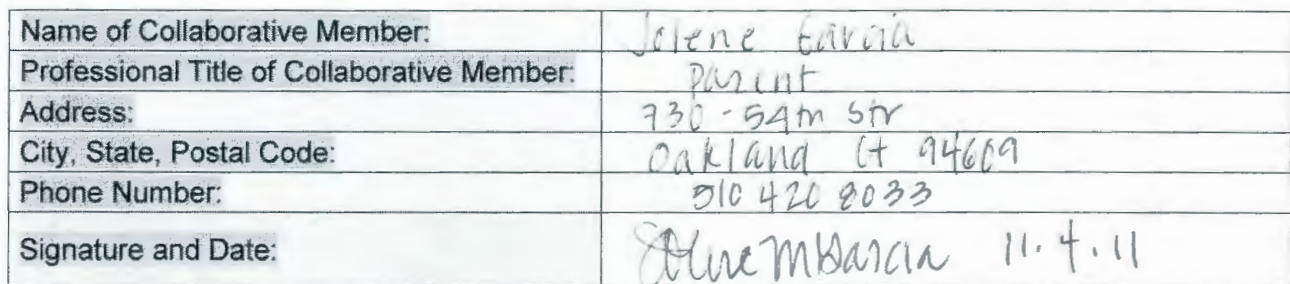 Name of Collaborative Member: Jolene Garcia
Professional Title of Collaborative Member: Parent
Address: 730 - 54th Str
City, State, Postal Code: Oakland CA 94609
Phone Number: 510 420 8033
Signature and Date: Jolene M Garcia 11.4.11